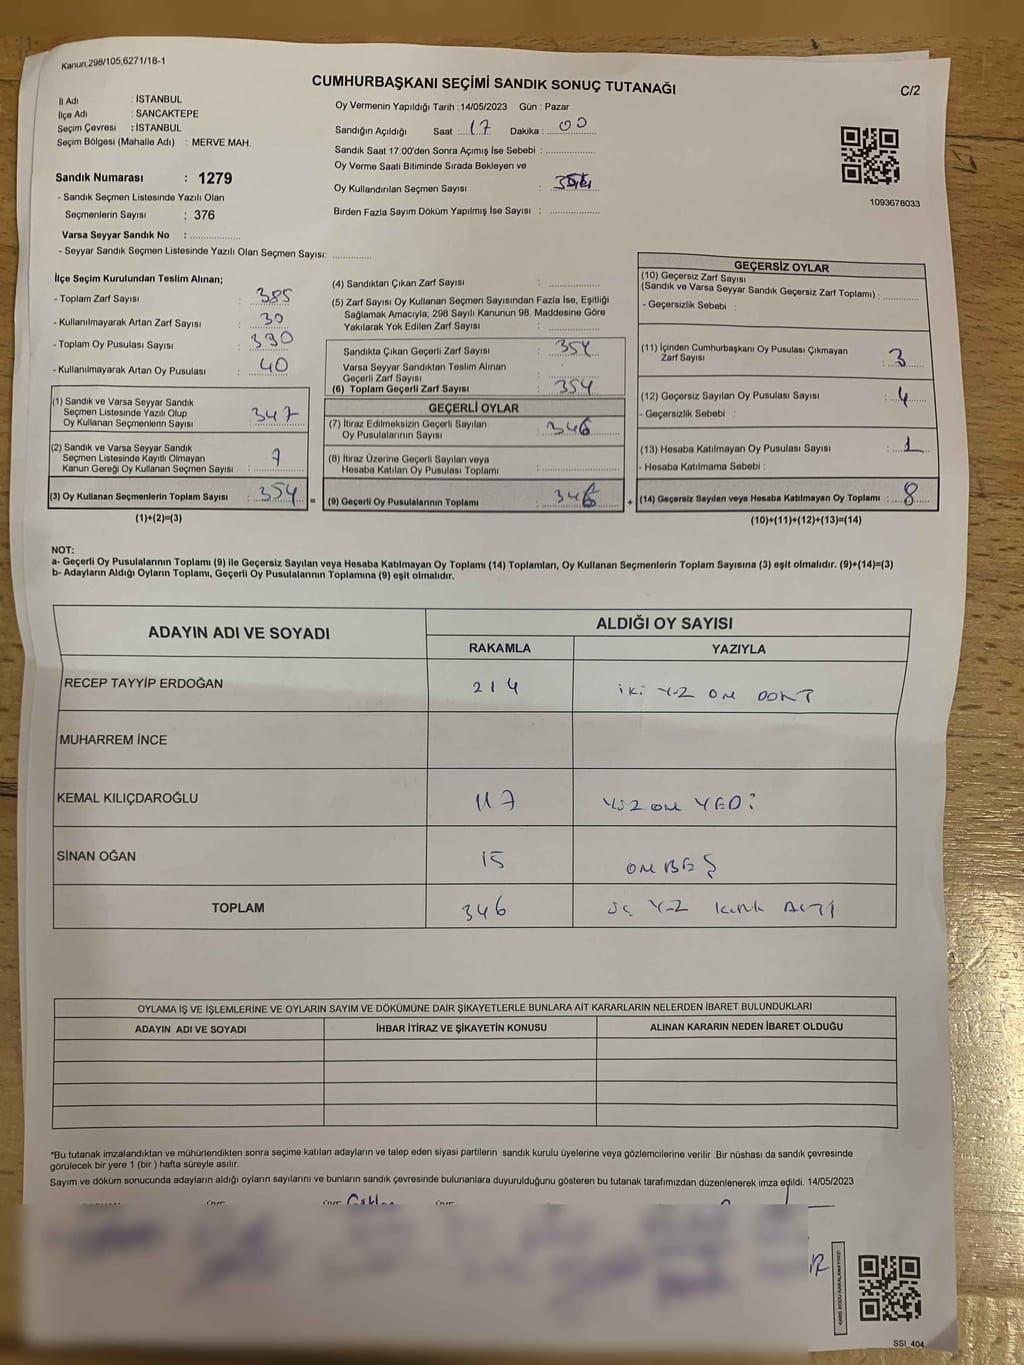 Kanun 298/105,6271/18-1
CUMHURBAŞKANI SEÇİMİ SANDIK SONUÇ TUTANAĞI
C/2
İl Adı : İSTANBUL
İlçe Adı : SANCAKTEPE
Seçim Çevresi : İSTANBUL
Seçim Bölgesi (Mahalle Adı) : MERVE MAH.
Oy Vermenin Yapıldığı Tarih :14/05/2023 Gün : Pazar
Sandığın Açıldığı Saat : 17 Dakika : 00
Sandık Saat 17:00'den Sonra Açımış İse Sebebi :
Oy Verme Saati Bitiminde Sırada Bekleyen ve
Oy Kullandırılan Seçmen Sayısı :
Birden Fazla Sayım Döküm Yapılmış İse Sayısı :
1093678033
Sandık Numarası : 1279
- Sandık Seçmen Listesinde Yazılı Olan
Seçmenlerin Sayısı : 376
Varsa Seyyar Sandık No :
- Seyyar Sandık Seçmen Listesinde Yazılı Olan Seçmen Sayısı:
İlçe Seçim Kurulundan Teslim Alınan;
- Toplam Zarf Sayısı : 385
- Kullanılmayarak Artan Zarf Sayısı : 30
- Toplam Oy Pusulası Sayısı : 390
- Kullanılmayarak Artan Oy Pusulası : 40
(1) Sandık ve Varsa Seyyar Sandık
Seçmen Listesinde Yazılı Olup
Oy Kullanan Seçmenlerin Sayısı : 347
(2) Sandık ve Varsa Seyyar Sandık
Seçmen Listesinde Kayıtlı Olmayan
Kanun Gereği Oy Kullanan Seçmen Sayısı : 7
(3) Oy Kullanan Seçmenlerin Toplam Sayısı : 354
(1)+(2)=(3)
(4) Sandıktan Çıkan Zarf Sayısı :
(5) Zarf Sayısı Oy Kullanan Seçmen Sayısından Fazla İse, Eşitliği
Sağlamak Amacıyla; 298 Sayılı Kanunun 98. Maddesine Göre
Yakılarak Yok Edilen Zarf Sayısı :
Sandıkta Çıkan Geçerli Zarf Sayısı : 354
Varsa Seyyar Sandıktan Teslim Alınan
Geçerli Zarf Sayısı :
(6) Toplam Geçerli Zarf Sayısı : 354
GEÇERLİ OYLAR
(7) İtiraz Edilmeksizin Geçerli Sayılan
Oy Pusulalarının Sayısı : 346
(8) İtiraz Üzerine Geçerli Sayılan veya
Hesaba Katılan Oy Pusulası Toplamı :
= (9) Geçerli Oy Pusulalarının Toplamı : 346
GEÇERSİZ OYLAR
(10) Geçersiz Zarf Sayısı
(Sandık ve Varsa Seyyar Sandık Geçersiz Zarf Toplamı) :
- Geçersizlik Sebebi :
(11) İçinden Cumhurbaşkanı Oy Pusulası Çıkmayan
Zarf Sayısı : 3
(12) Geçersiz Sayılan Oy Pusulası Sayısı : 4
- Geçersizlik Sebebi :
(13) Hesaba Katılmayan Oy Pusulası Sayısı : 1
- Hesaba Katılmama Sebebi :
+ (14) Geçersiz Sayılan veya Hesaba Katılmayan Oy Toplamı : 8
(10)+(11)+(12)+(13)=(14)
NOT:
a- Geçerli Oy Pusulalarının Toplamı (9) ile Geçersiz Sayılan veya Hesaba Katılmayan Oy Toplamı (14) Toplamları, Oy Kullanan Seçmenlerin Toplam Sayısına (3) eşit olmalıdır. (9)+(14)=(3)
b- Adayların Aldığı Oyların Toplamı, Geçerli Oy Pusulalarının Toplamına (9) eşit olmalıdır.
ADAYIN ADI VE SOYADI
ALDIĞI OY SAYISI
RAKAMLA YAZIYLA
RECEP TAYYİP ERDOĞAN 214 iki YüZ ON DÖRT
MUHARREM İNCE
KEMAL KILIÇDAROĞLU 117 YüZ ON YEDİ
SİNAN OĞAN 15 ON BEŞ
TOPLAM 346 üç YüZ kırk ALTI
OYLAMA İŞ VE İŞLEMLERİNE VE OYLARIN SAYIM VE DÖKÜMÜNE DAİR ŞİKAYETLERLE BUNLARA AİT KARARLARIN NELERDEN İBARET BULUNDUKLARI
ADAYIN ADI VE SOYADI İHBAR İTİRAZ VE ŞİKAYETİN KONUSU ALINAN KARARIN NEDEN İBARET OLDUĞU
*Bu tutanak imzalandıktan ve mühürlendikten sonra seçime katılan adayların ve talep eden siyasi partilerin sandık kurulu üyelerine veya gözlemcilerine verilir .Bir nüshası da sandık çevresinde
görülecek bir yere 1 (bir ) hafta süreyle asılır.
Sayım ve döküm sonucunda adayların aldığı oyların sayılarını ve bunların sandık çevresinde bulunanlara duyurulduğunu gösteren bu tutanak tarafımızdan düzenlenerek imza edildi. 14/05/2023
SSI_404